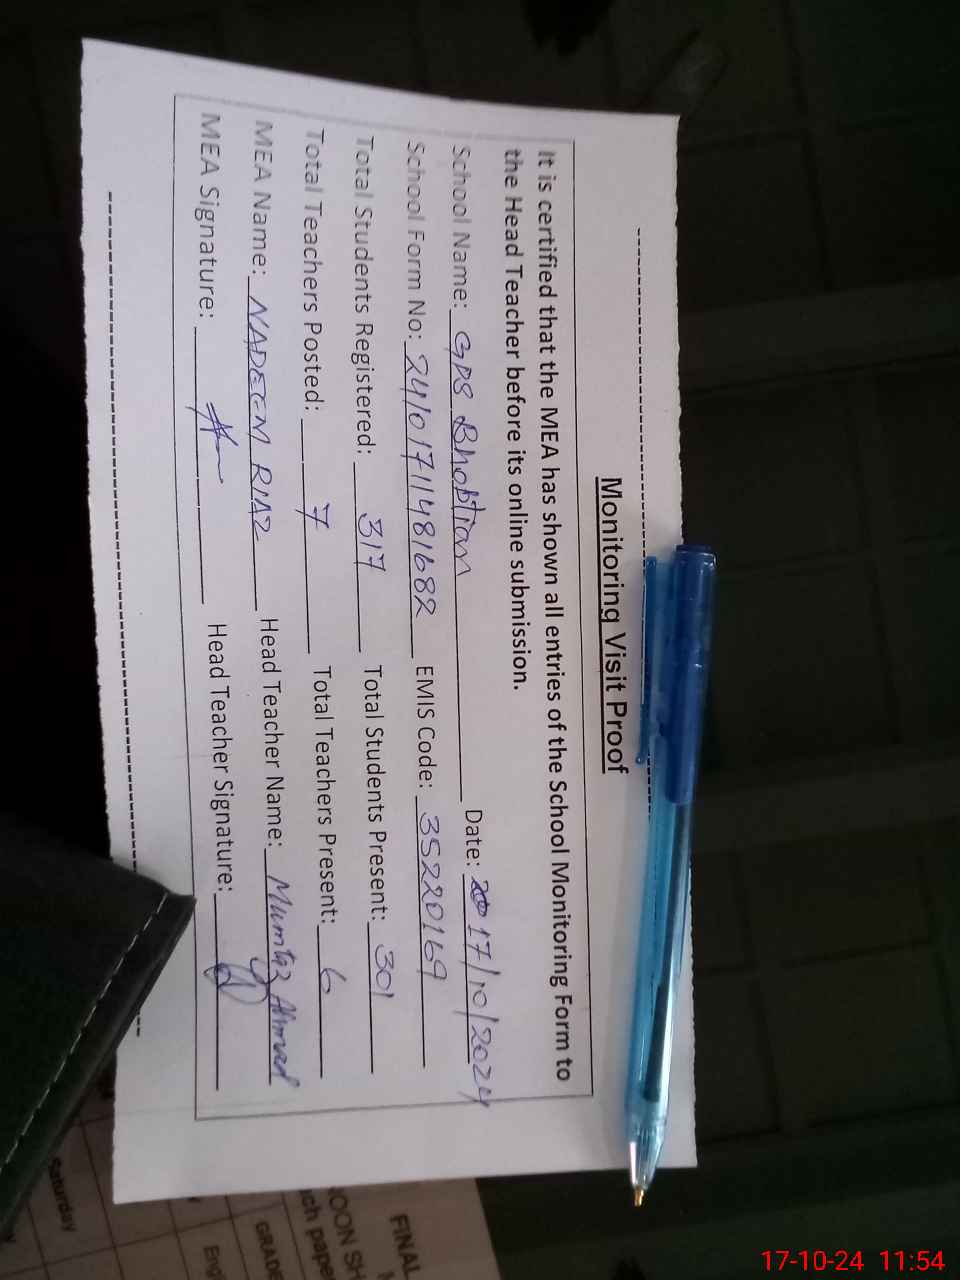 Monitoring Visit Proof
It is certified that the MEA has shown all entries of the School Monitoring Form to
the Head Teacher before its online submission.
School Name: GPS Bhobtian Date: 17/10/2024
School Form No: 24101711481682 EMIS Code: 35220169
Total Students Registered: 317 Total Students Present: 301
Total Teachers Posted: 7 Total Teachers Present: 6
MEA Name: NADEEM RIAZ Head Teacher Name: Mumtaz Ahmad
MEA Signature: Head Teacher Signature:
FINAL
NOON SH
ch pape
GRADE
Eng
Saturday
17-10-24 11:54